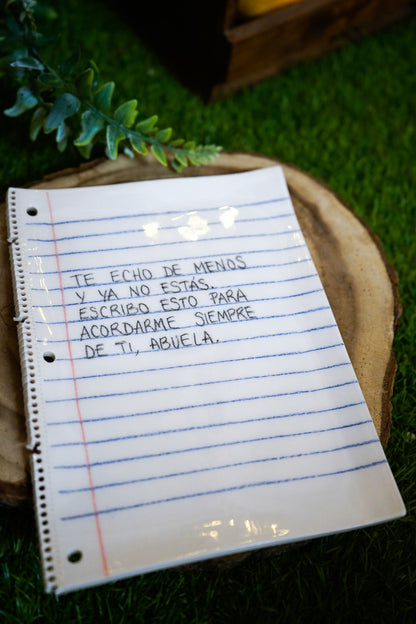 TE ECHO DE MENOS
Y YA NO ESTÁS.
ESCRIBO ESTO PARA
ACORDARME SIEMPRE
DE TI, ABUELA.